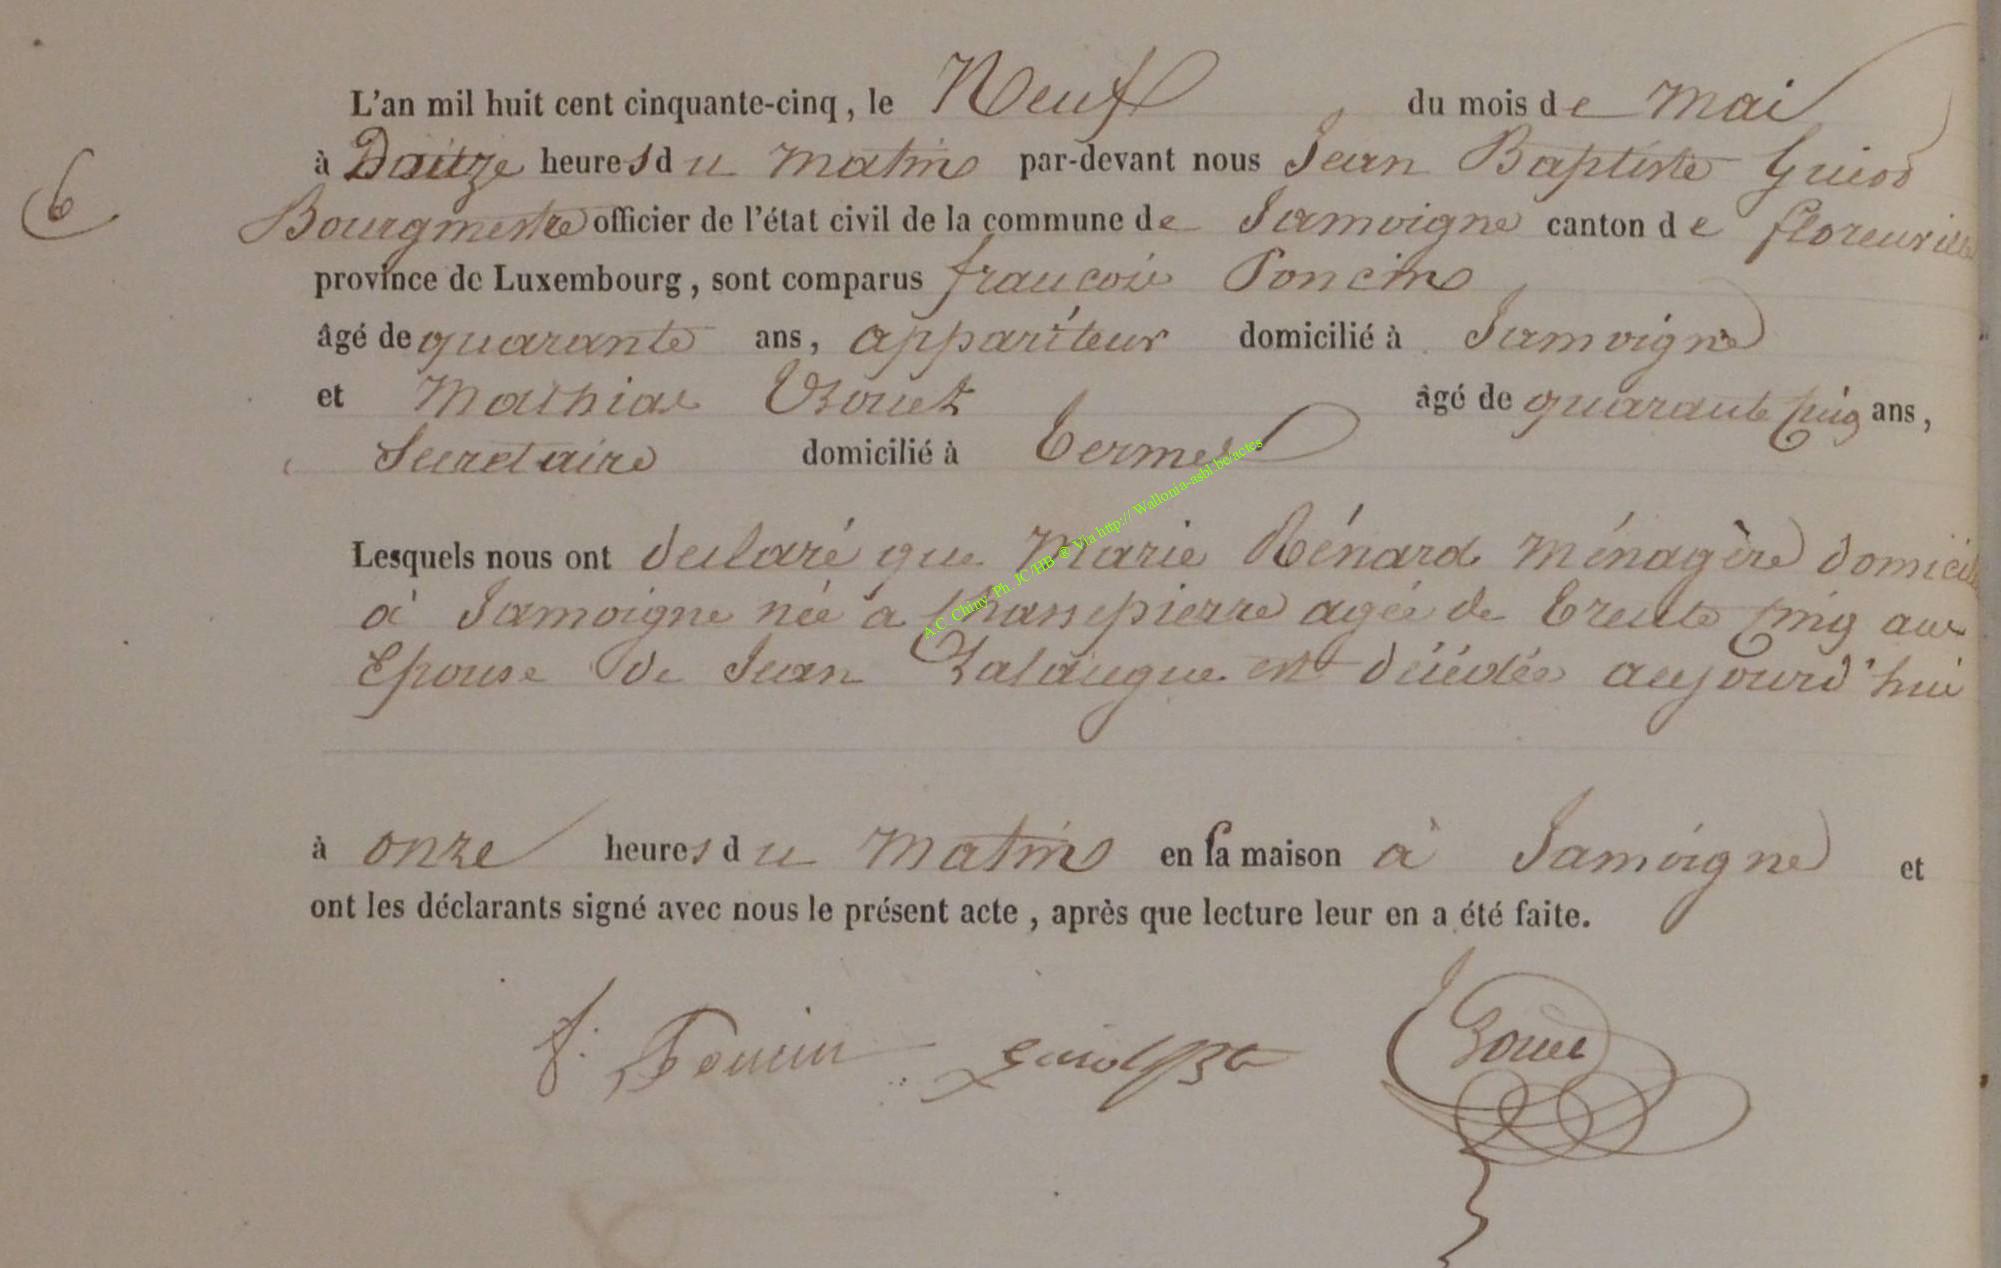 L'an mil huit cent cinquante-cinq, le Neuf du mois de mai
à heures du matin par-devant nous Jean Baptiste Guiod
6
Bourgmestre officier de l'état civil de la commune de Jamoigne canton de florenville
province de Luxembourg, sont comparus francois Poncin
âgé de quarante ans, appariteur domicilié à Jamoigne
et Mathias âgé de quarante cinq ans,
Secretaire domicilié à Termes
Lesquels nous ont declaré que Marie Rénard ménagère
à Jamoigne née à Chassepierre agée de trente cinq ans
Epouse de Jean est décédée aujourd'hui
à onze heures du matin en sa maison à Jamoigne et
ont les déclarants signé avec nous le présent acte, après que lecture leur en a été faite.
f. Poncin
A.C. Chiny Ph. JC/HB ® Via http:// Wallonia-asbl.be/actes